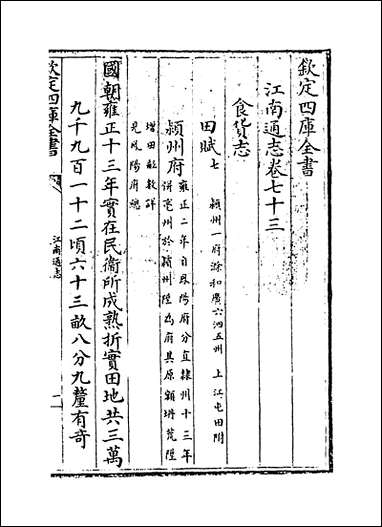 欽定四庫全書
江南通志卷七十三
食貨志
田賦七
潁州一府滁和廣六泗五州 上江屯田附
潁州府
雍正二年自鳳陽府分直隸州十三年
併亳州於潁州陞為府其原額坍荒陞
增田畝數詳
見鳳陽府總
國朝雍正十三年實在民衛所成熟折實田地共三萬
九千九百一十二頃六十三畝八分九釐有奇
欽定四庫全書
江南通志
一